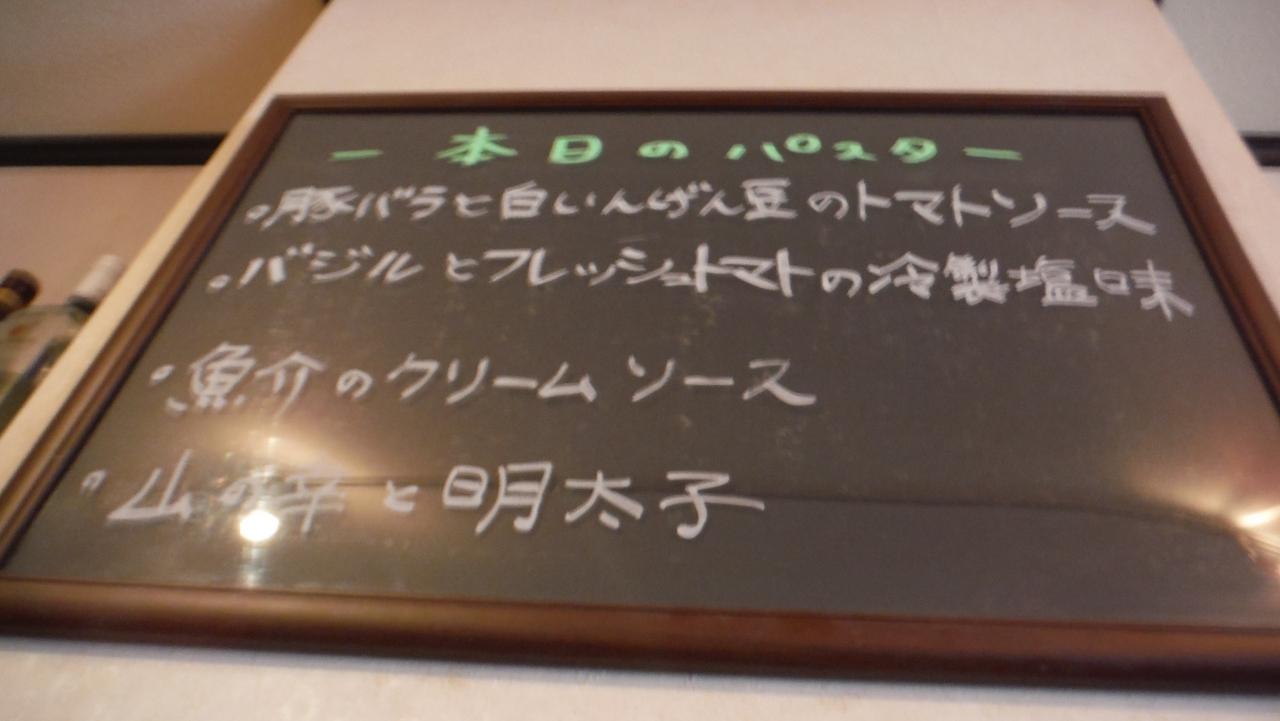 ー 本日のパスタ ー
。豚バラと白いんげん豆のトマトソース
。バジルとフレッシュトマトの冷製塩味
。魚介のクリームソース
。山の幸と明太子